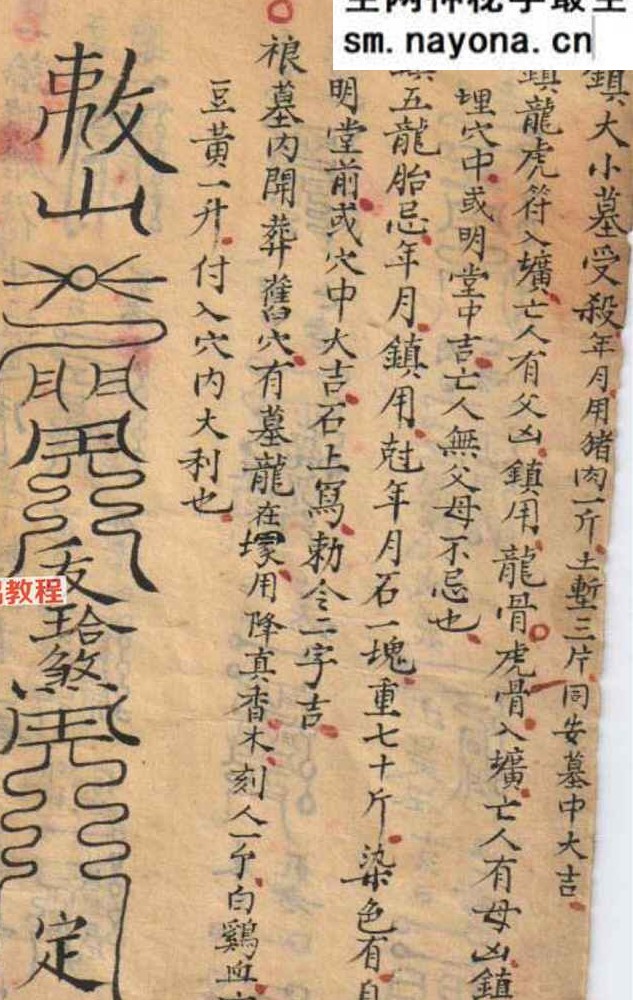 sm.nayona.cn
鎮大小墓受殺年月用猪肉一斤土墼三片同安墓中大吉
鎮龍虎符入壙亡人有父凶鎮用龍骨虎骨入壙亡人有母凶鎮
埋穴中或明堂中吉亡人無父母不忌也
鎮五龍胎忌年月鎮用尅年月石一塊重七十斤染色有自
明堂前或穴中大吉石上寫勅令二字吉
墓内開葬舊穴有墓龍在塚用降真香木刻人一个白鷄血
豆黄一升付入穴内大利也
敕山
煞
定
教程